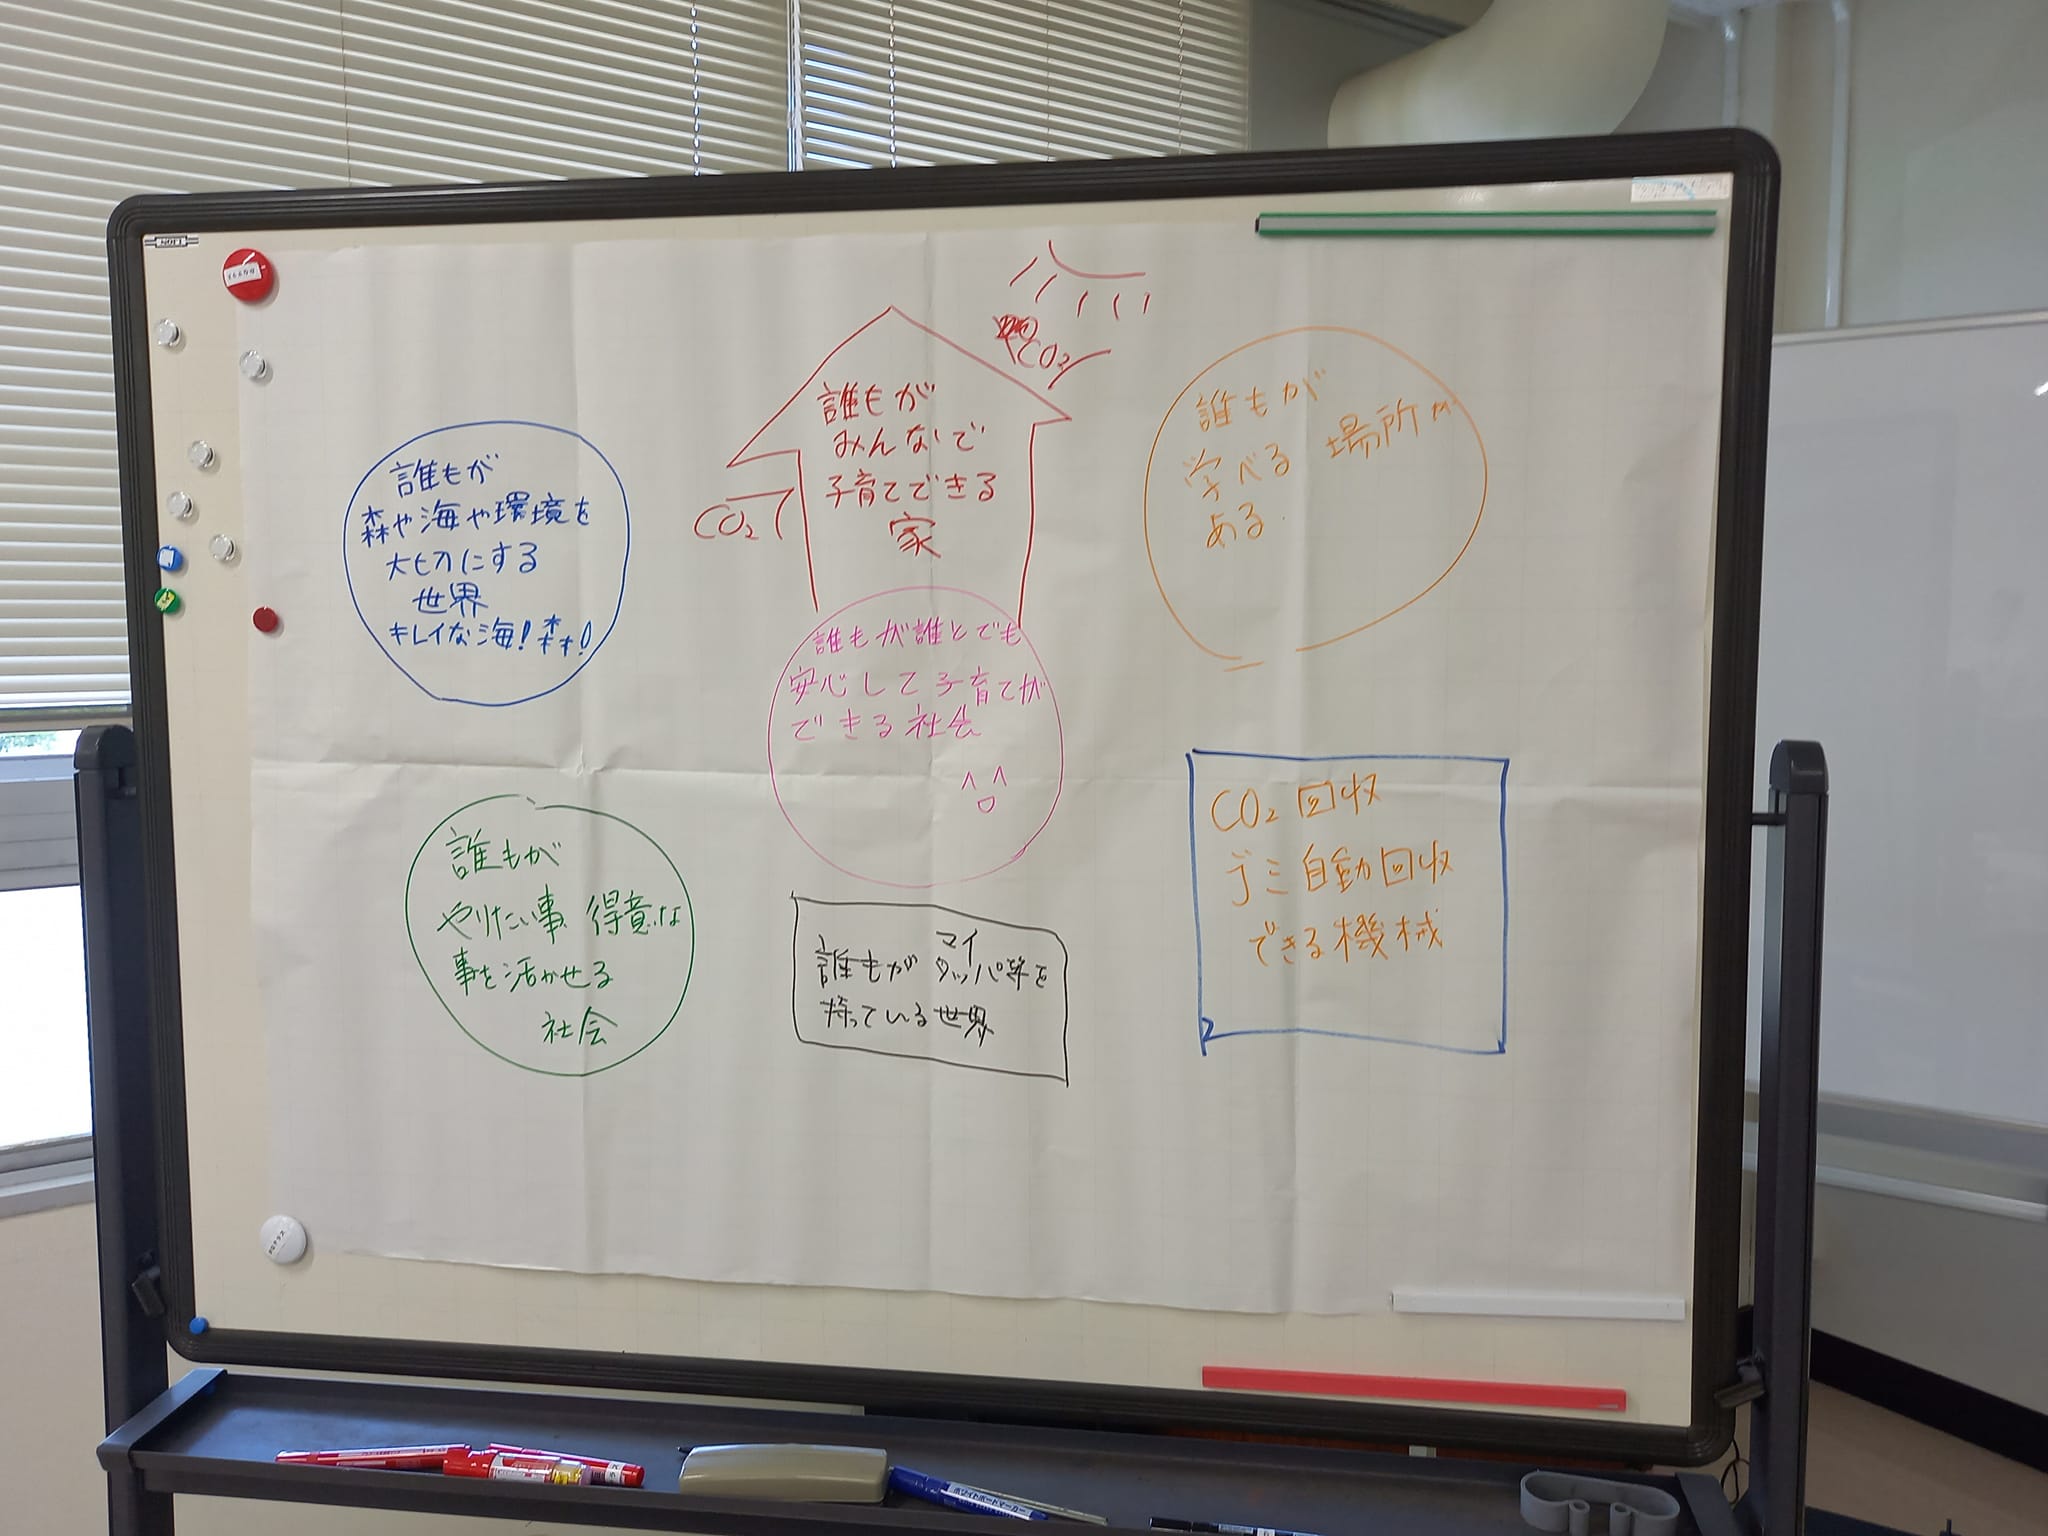 誰もが
森や海や環境を
大切にする
世界
キレイな海!森!
誰もが
みんなで
子育てできる
家
CO2
CO2
誰もが
学べる 場所が
ある.
誰もが誰とでも
安心して子育てが
できる社会
誰もが
やりたい事 得意な
事を活かせる
社会
マイ
誰もがタッパ等を
持っている世界
CO2回収
ゴミ自動回収
できる機械
ホワイトボードマーカー